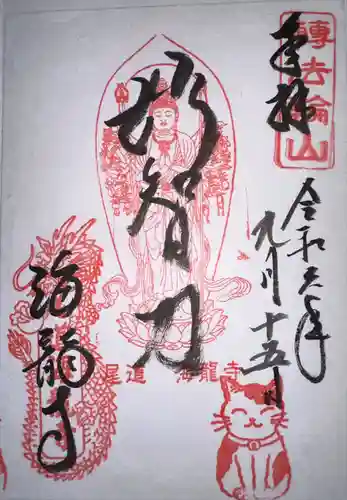 轉法輪山
奉拝
令和六年
九月十五日
妙智力
尾道 海龍寺
海龍寺